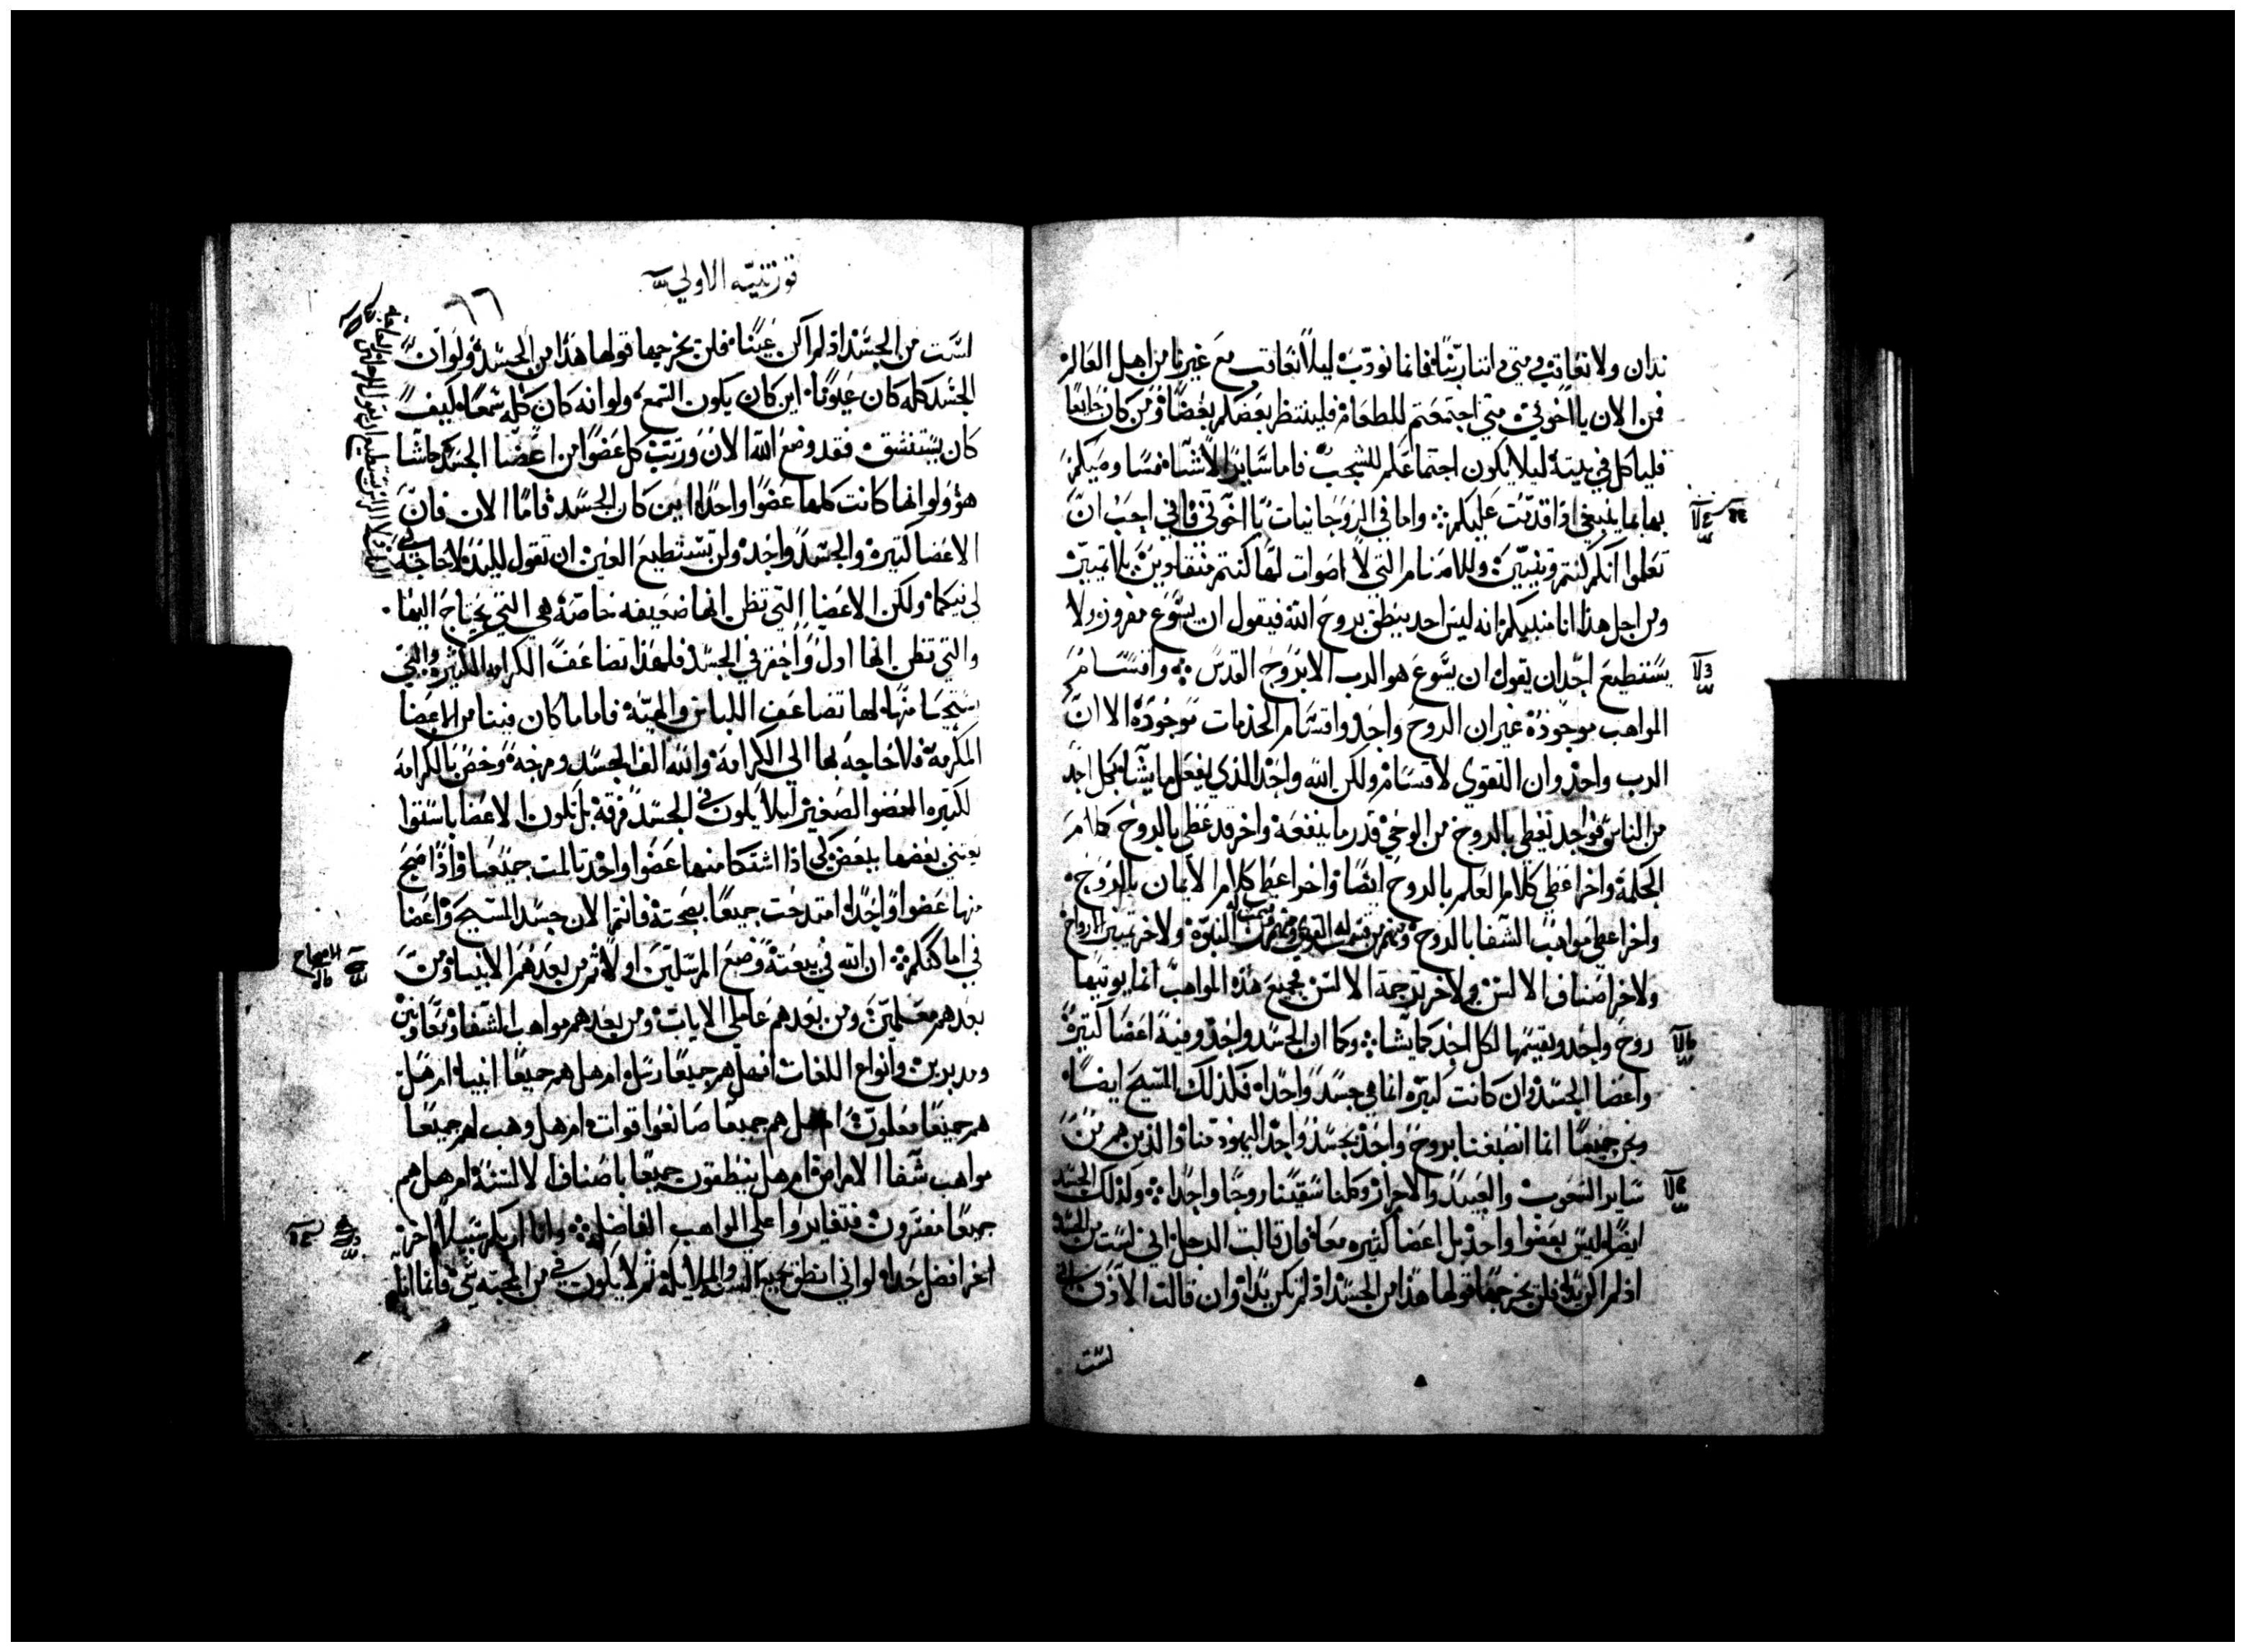 ندان ولا نعاقب ومتى داننا ربنا فانما نودب ليلا نعاقب مع غيرنا من اهل العالم
فمن الان يا اخوتي متى اجتمعتم للطعام فلينتظر بعضكم بعضا ومن كان جايعا
فلياكل في بيته ليلا يكون اجتماعكم للشجب فاما ساير الاشيا فسا وصيكم
بها بما ينبغي اذا قدمت عليكم واما في الروحانيات يا اخوتي فاني احب ان
تعلموا انكم كنتم وثنيين وللاصنام التي لا اصوات لها كنتم منقادين بلا تمييز
ومن اجل هذا انا منبيكم انه ليس احد ينطق بروح الله فيقول ان يسوع مفروز ولا
يستطيع احد ان يقول ان يسوع هو الرب الا بروح القدس واقسام
المواهب موجوده غير ان الروح واحد واقسام الخدمات موجودة الا ان
الرب واحد وان القوى لاقسام ولكن الله واحد الذي يفعل ما يشا بكل احد
من الناس فواحد تعطى بالروح من الوحي قدر ما ينفعه واخر قد عطي بالروح كلام
الحكمة واخر اعطي كلام العلم بالروح ايضا واخر اعطي كلام الايمان بالروح
واخر اعطي مواهب الشفا بالروح ومنهم من قسمت له القوى ومنهم من قسمت له النبوة ولاخر تمييز الارواح
ولاخر اصناف الالسن ولاخر ترجمة الالسن فجميع هذه المواهب انما يوتيها
روح واحد ويقسمها لكل احد كما يشا وكما ان الجسد واحد وفيه اعضا كتيرة
واعضا الجسد وان كانت كتيره انما هي جسدا واحدا فكذلك المسيح ايضا
ونحن جميعا انما انصبغنا بروح واحد بجسد واحد اليهود منا والذين هم من
ساير الشعوب والعبيد والاحرار وكلنا سقينا روحا واحدا ولذلك الجسد
ايضا ليس بعضوا واحد بل اعضا كتيره معا فان قالت الرجل اني لست من الجسد
اذ لم اكن يدا فلن يخرجها قولها هذا من الجسد اذ لم تكن يدا وان قالت الاذن اني
لست
قورنتيه الاولي
٦٦
لست من الجسد اذ لم اكن عينا فلن يخرجها قولها هذا من الجسد ولو ان
الجسد كله كان عيونا اين كان يكون السمع ولو انه كان كله سمعا كيف
كان يستنشق فقد وضع الله الان ورتب كل عضوا من اعضا الجسد كما شا
هو ولو انها كانت كلها عضوا واحدا اين كان الجسد فاما الان فان
الاعضا كتيرة والجسد واحد ولن تستطيع العين ان تقول لليد لا حاجة
لي فيكما ولكن الاعضا التي تظن انها ضعيفه خاصة هي التي يحتاج اليها
والتي تظن انها اذل واحقر في الجسد فلهذا تضاعف الكرامه الكتيره والتي
يستحيا منها لها تضاعف اللباس والهيه فاما ما كان فينا من الاعضا
المكرمة فلا حاجه بها الي الكرامة والله الف الجسد ومزجه وخص بالكرامة
الكتيره العضوا الصغير ليلا يكون في الجسد فرقة بل تكون الاعضا باستوا
يعتني بعضها ببعض لكي اذا اشتكا منها عضوا واحد تالمت جميعا واذا مدح
منها عضوا واحدا امتدحت جميعا بصحته فانتم الان جسد المسيح واعضا
في اماكنكم ان الله في بيعته وضع المرسلين اولا ثم من بعدهم الانبيا ومن
بعدهم معلمين ومن بعدهم عاملي الايات ومن بعدهم مواهب الشفا ومعاونين
ومدبرين وانواع اللغات افهل هم جميعا رسل ام هل هم جميعا انبيا ام هل
هم جميعا معلمون ام هل هم جميعا صانعوا قوات ام هل وهب لهم جميعا
مواهب شفا الامراض ام هل ينطقون جميعا باصناف الالسنة ام هل هم
جميعا مفسرون فتغايروا علي المواهب الفاضله وانا اريكم سبيلا اخر
اخر افضل جدا لو اني انطق بجميع السن والملايكة ثم لا يكون في من المحبه شي فانما انا
الاصحاح